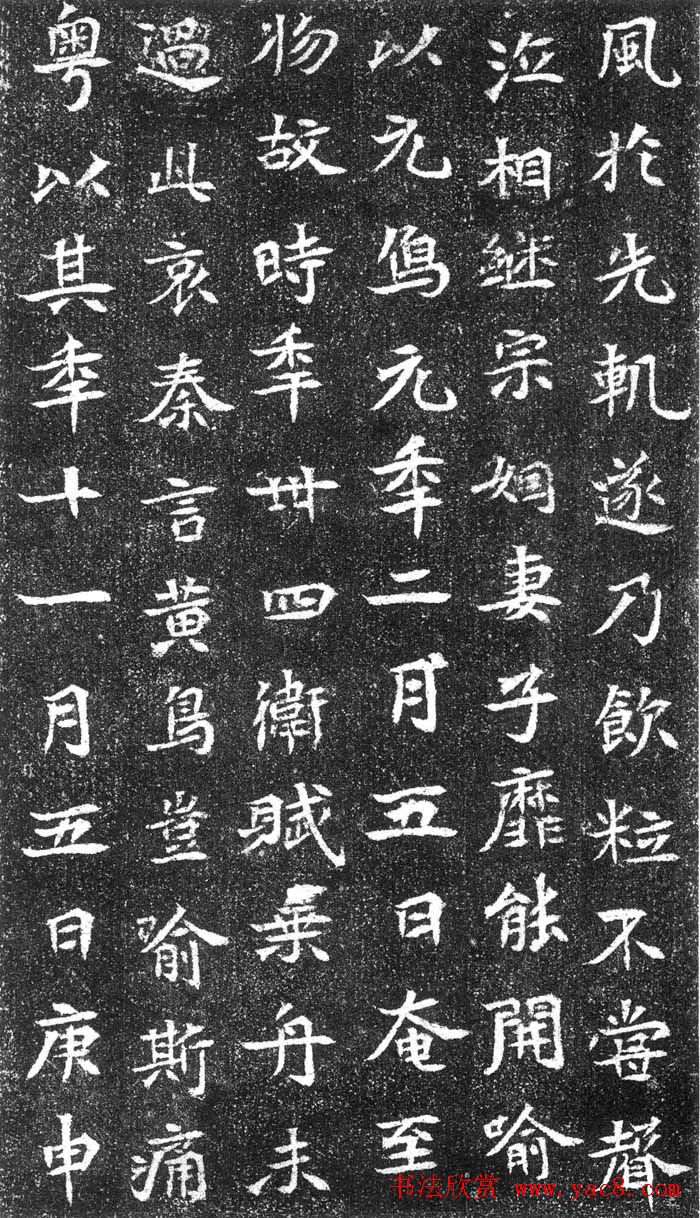 風於先軌遂乃飲粒不嘗聲
泣相継宗姻妻子靡能開喻
以元象元秊二月五日奄至
物故時秊卅四衛賦乗舟未
過此哀秦言黃鳥豈喻斯痛
粵以其秊十一月五日庚申
书法欣赏 www.yac8.com